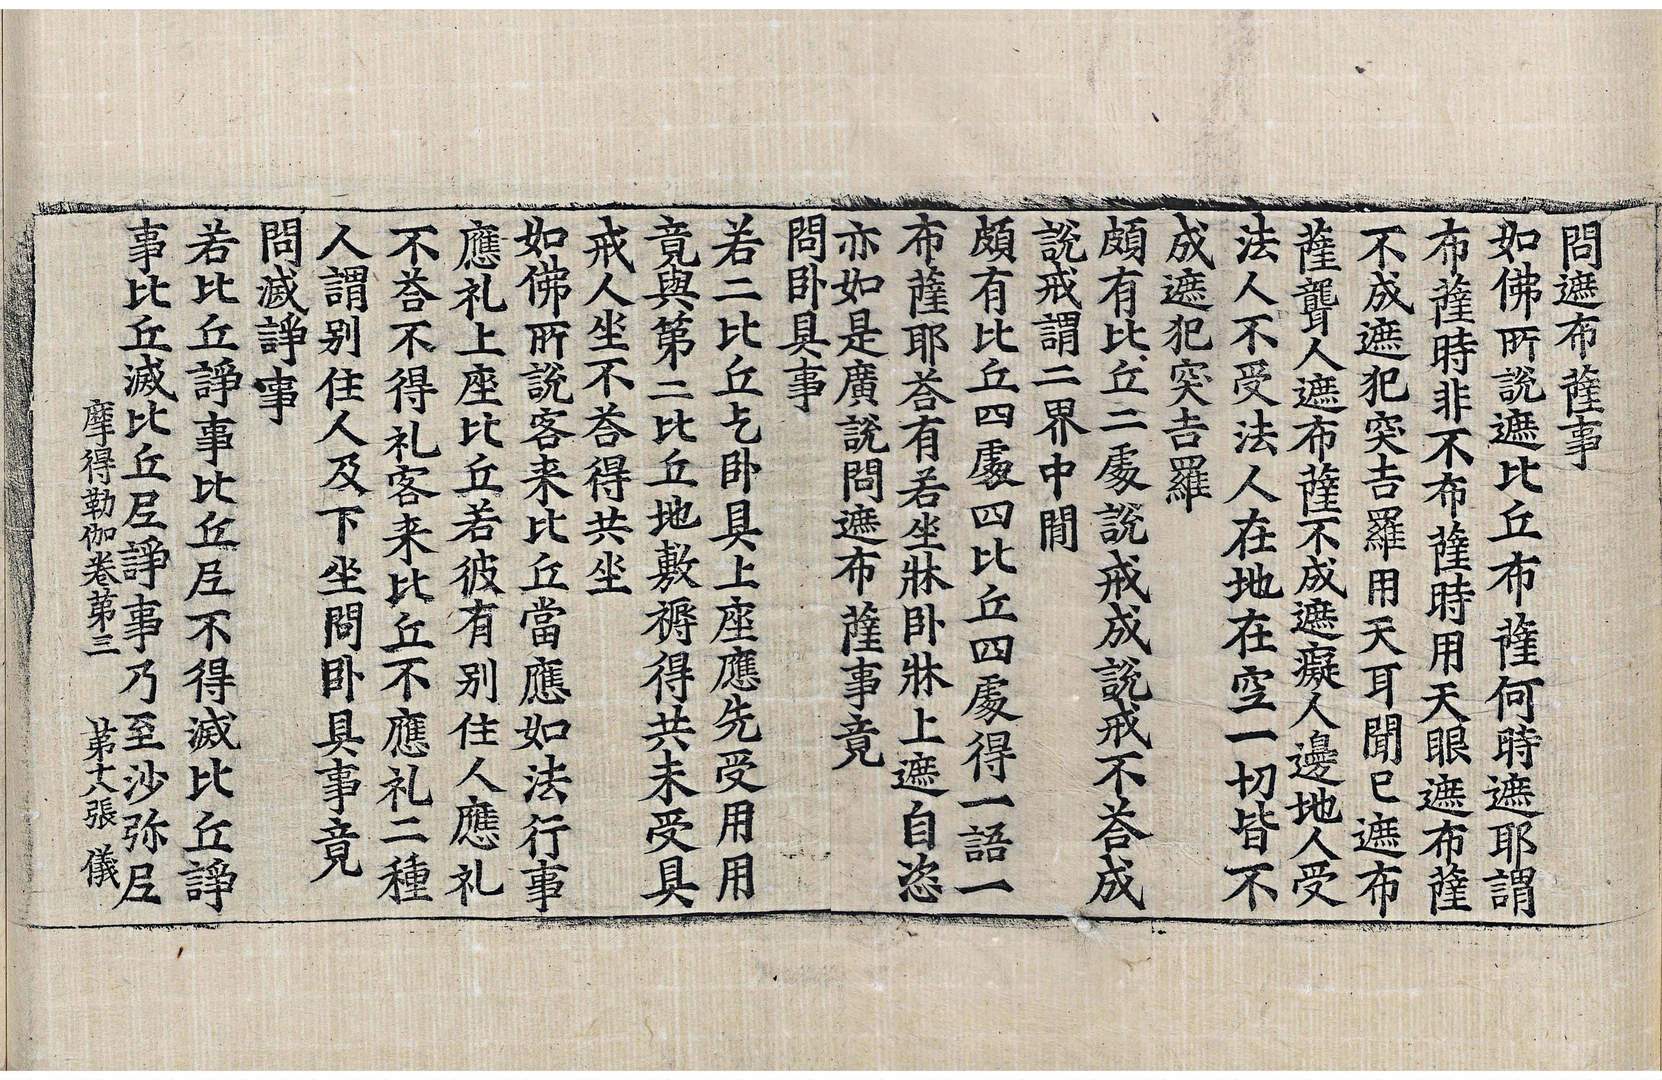 問遮布薩事
如佛所說遮比丘布薩何時遮耶謂
布薩時非不布薩時用天眼遮布薩
不成遮犯突吉羅用天耳聞已遮布
薩聾人遮布薩不成遮癡人邊地人受
法人不受法人在地在空一切皆不
成遮犯突吉羅
頗有比丘二處說戒成說戒不荅成
說戒謂二界中閒
頗有比丘四處四比丘四處得一語一
布薩耶荅有若坐牀卧牀上遮自恣
亦如是廣說問遮布薩事竟
問卧具事
若二比丘乞卧具上座應先受用用
竟與第二比丘地敷褥得共未受具
戒人坐不荅得共坐
如佛所說客来比丘當應如法行事
應礼上座比丘若彼有別住人應礼
不荅不得礼客来比丘不應礼二種
人謂別住人及下坐問卧具事竟
問滅諍事
若比丘諍事比丘尼不得滅比丘諍
事比丘滅比丘尼諍事乃至沙弥尼
摩得勒伽卷第三 第十八張 儀